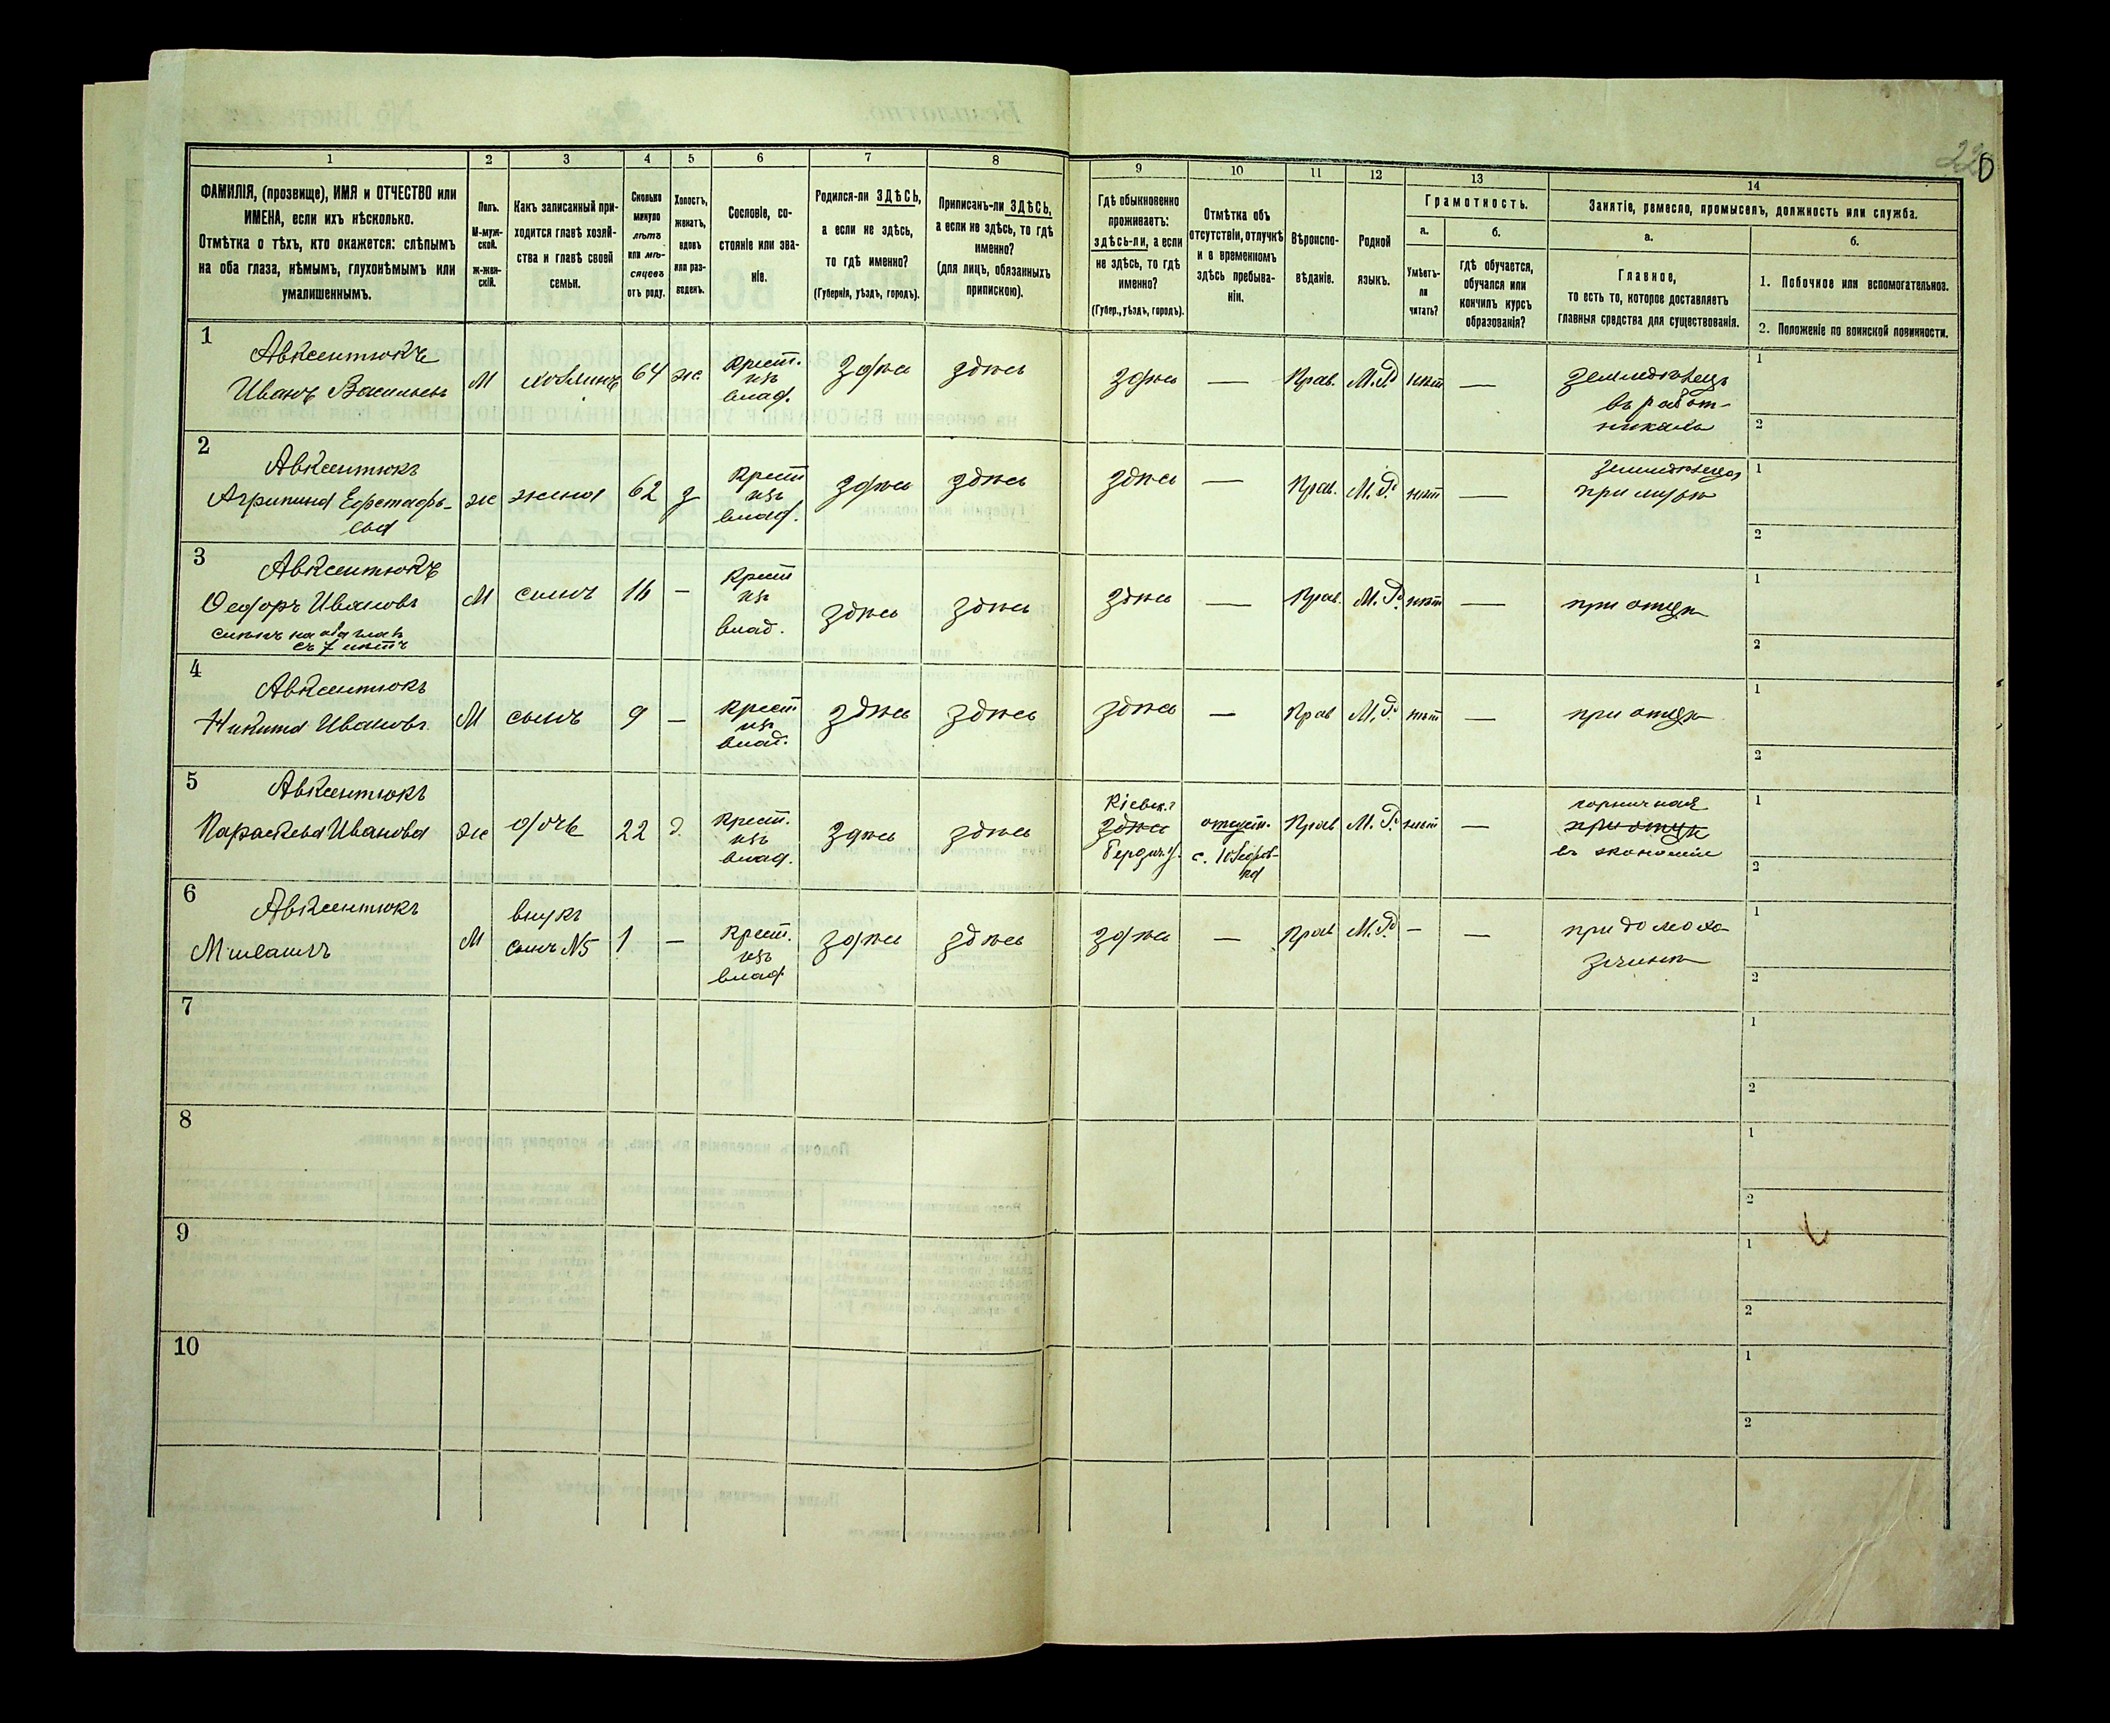 220
1
2
3
4
5
6
7
8
9
10
11
12
13
14
ФАМИЛІЯ, (прозвище), ИМЯ и ОТЧЕСТВО или
ИМЕНА, если ихъ нѣсколько.
Отмѣтка о тѣхъ, кто окажется: слѣпымъ
на оба глаза, нѣмымъ, глухонѣмымъ или
умалишеннымъ.
Полъ.
М-муж-
ской.
ж-жен-
скій.
Какъ записанный при-
ходится главѣ хозяй-
ства и главѣ своей
семьи.
Сколько
минуло
лѣтъ
или мѣ-
сяцевъ
отъ роду.
Холостъ,
женатъ,
вдовъ
или раз-
веденъ.
Сословіе, со-
стояніе или зва-
ніе.
Родился-ли ЗДѢСЬ,
а если не здѣсь,
то гдѣ именно?
(Губернія, уѣздъ, городъ).
Приписанъ-ли ЗДѢСЬ,
а если не здѣсь, то гдѣ
именно?
(для лицъ, обязанныхъ
припискою).
Гдѣ обыкновенно
проживаетъ:
здѣсь-ли, а если
не здѣсь, то гдѣ
именно?
(Губер., уѣздъ, городъ).
Отмѣтка объ
отсутствіи, отлучкѣ
и о временномъ
здѣсь пребыва-
ніи.
Вѣроиспо-
вѣданіе.
Родной
языкъ.
Грамотность.
а.
Умѣетъ-
ли
читать?
б.
гдѣ обучается,
обучался или
кончилъ курсъ
образованія?
Занятіе, ремесло, промыселъ, должность или служба.
а.
Главное,
то есть то, которое доставляетъ
главныя средства для существованія.
б.
1. Побочное или вспомогательное.
2. Положеніе по воинской повинности.
1
Авксентюкъ
Иванъ Васильевъ
М
хозяинъ
64
ж
крест.
изъ
влад.
здѣсь
здѣсь
здѣсь
—
Прав.
М. Р.
нѣтъ
—
земледѣлецъ
въ работ-
никахъ
1
2
2
Авксентюкъ
Агрипина Ефстафь-
ева
ж
жена
62
з
крест
изъ
влад.
здѣсь
здѣсь
здѣсь
—
Прав.
М. Р.
нѣт
—
при мужѣ
1
2
3
Авксентюкъ
Федоръ Ивановъ
с 7 лѣтъ
М
сынъ
16
—
крест
изъ
влад.
здѣсь
здѣсь
здѣсь
—
Прав.
М. Р.
нѣт
—
при отцѣ
1
2
4
Авксентюкъ
Никита Ивановъ
М
сынъ
9
—
крест
изъ
влад.
здѣсь
здѣсь
здѣсь
—
Прав
М. Р.
нѣт
—
при отцѣ
1
2
5
Авксентюкъ
Параскева Иванова
ж
дочь
22
д.
крест.
изъ
влад.
здѣсь
здѣсь
Кіевск. г
здѣсь
Бердич. у.
отсутст.
Прав
М. Р.
нѣт
—
горничная
при отцѣ
въ экономіи
1
2
6
Авксентюкъ
М
внукъ
сынъ №5
1
—
крест.
изъ
влад
здѣсь
здѣсь
здѣсь
—
Прав
М. Р.
—
—
при домохо-
зяинѣ
1
2
7
1
2
8
1
2
9
1
2
10
1
2